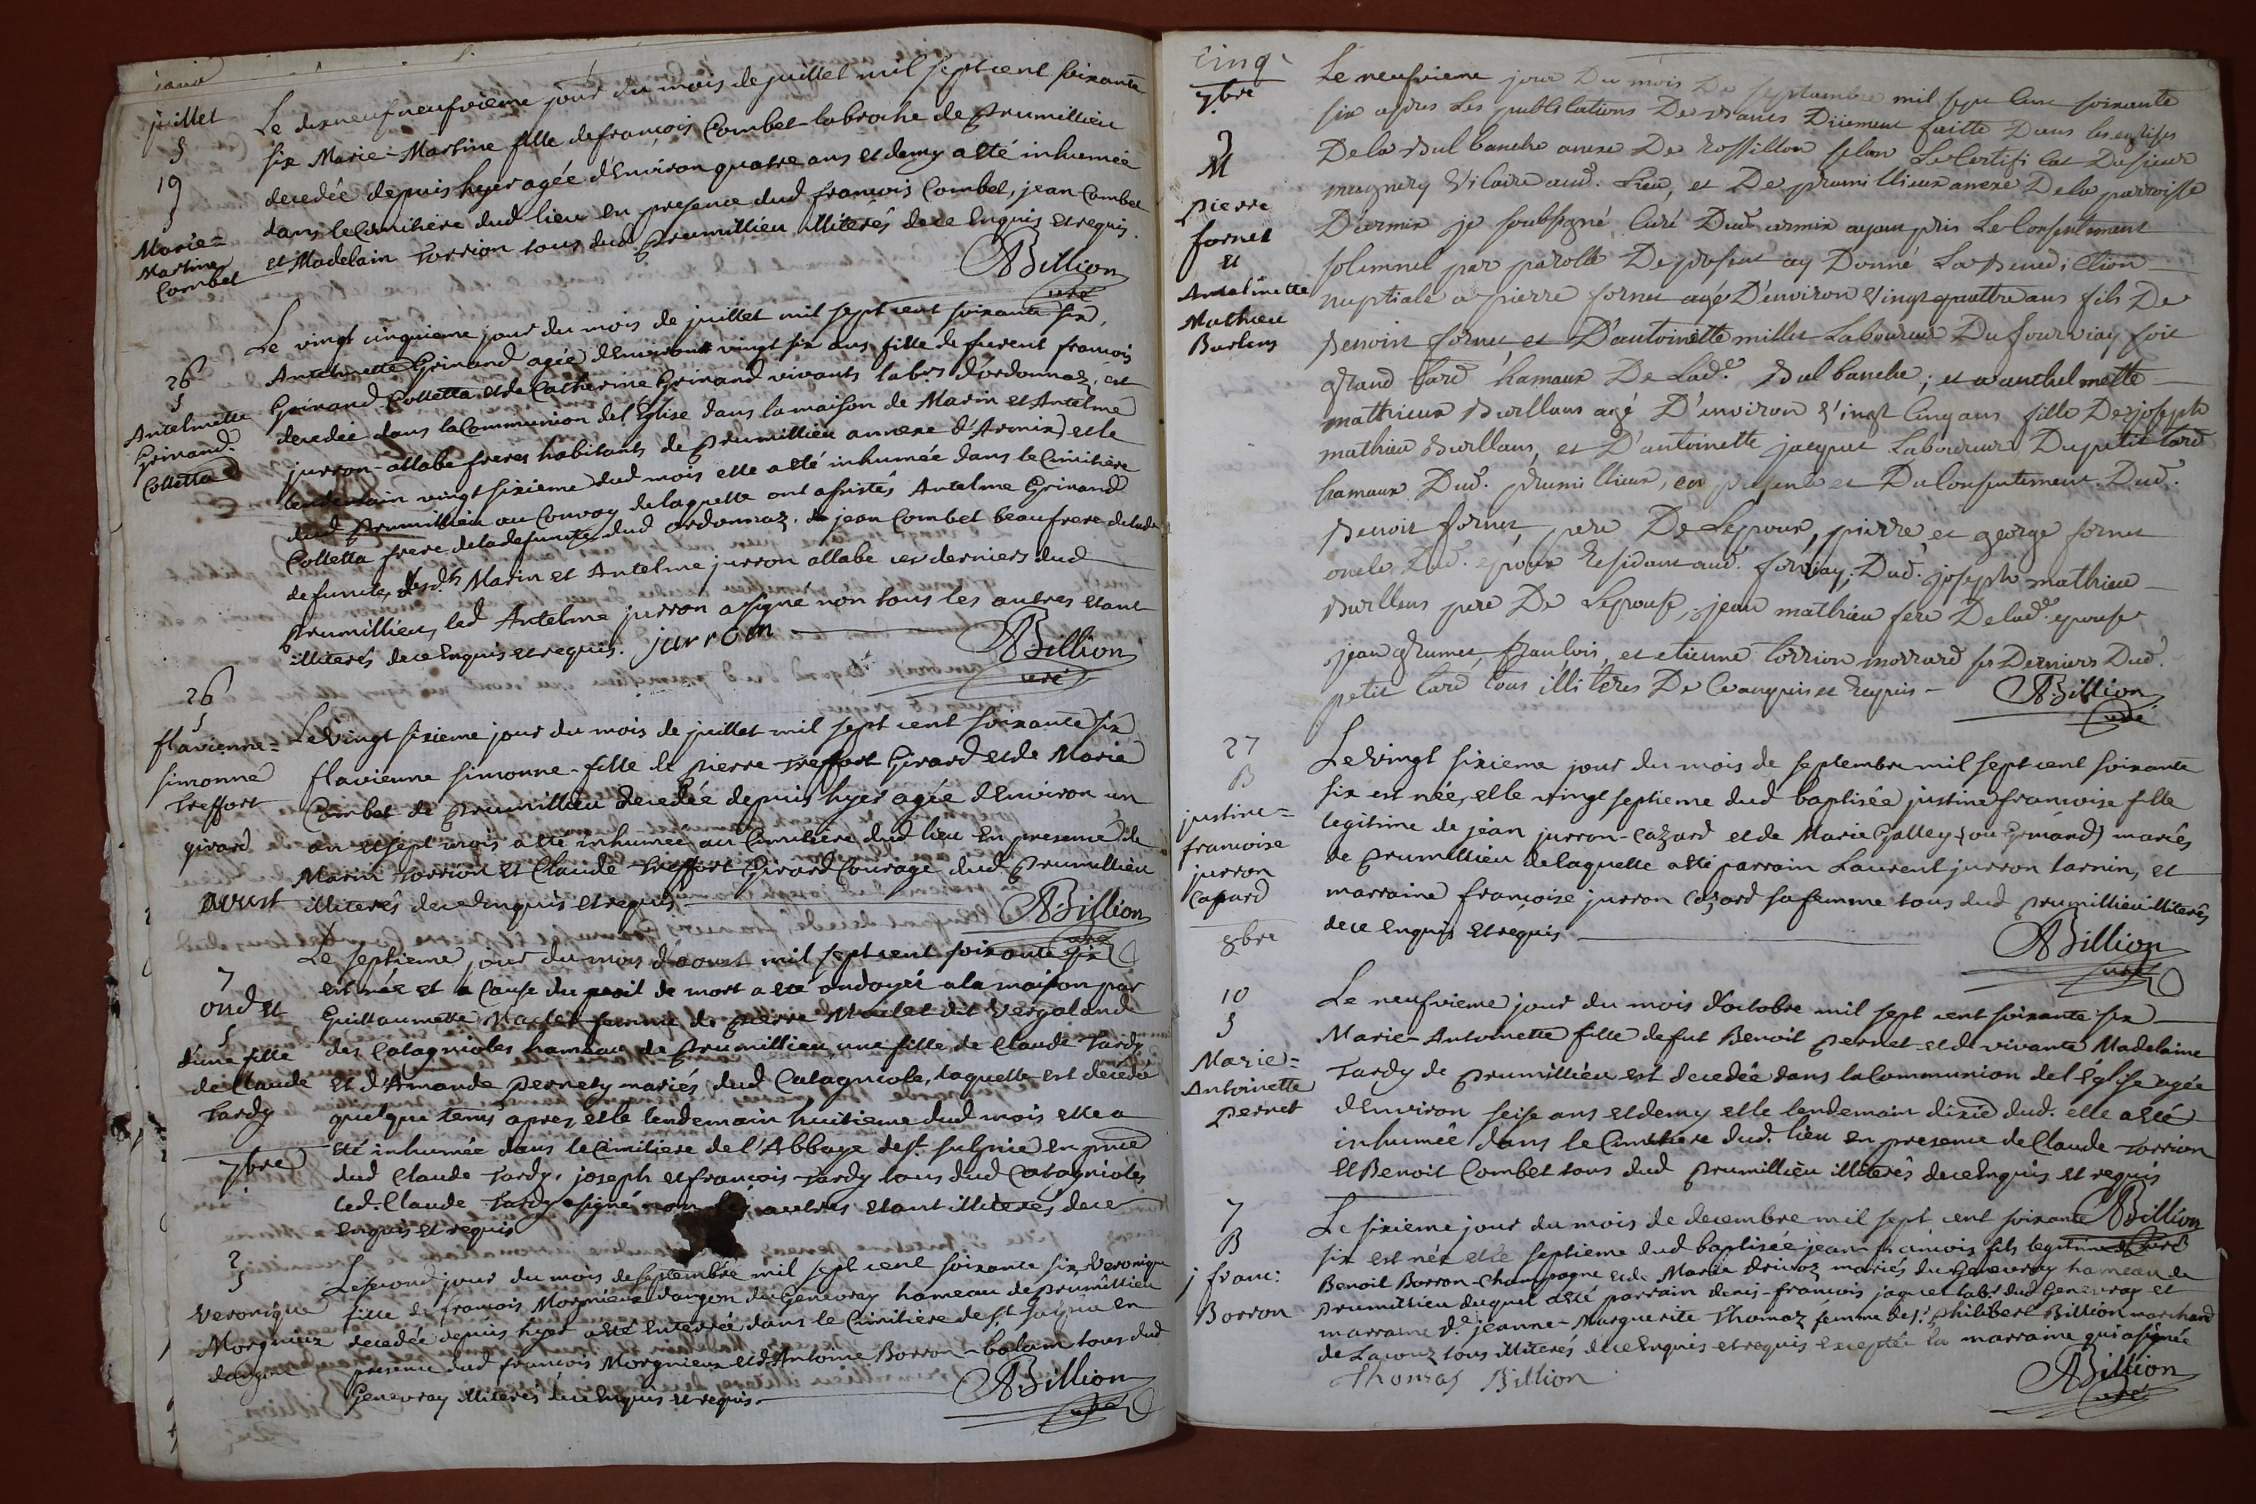 juillet
S
19
S
Marie=
Martine
Combet
Le dixneuf neufvieme jour du mois de juillet mil sept cent soixante
six Marie-Martine fille de françois Combet labroche de prumillieu
decedée depuis hyer agée d'Environ quatre ans et demy a eté inhumée
dans le Cimitiere dud lieu en presence dud françois Combet, jean Combet
et Madelain Torrion tous dud prumillieu illiterés de ce Enquis et requis.
ABillion
curé
26
S
Antelmette
Grinand
Colletta
Le vingt cinquieme jour du mois de juillet mil sept cent soixante six,
Antelmette Grinand agée d'Environ vingt six ans fille de furent francois
Grinand Colletta et de Catherine Grinand vivants labrs d'ordonnaz, est
decedée dans la Communion de l'Eglise dans la maison de Marin et Antelme
jurron-allabe freres habitants de prumillieu annexe d'Armix) et le
lendemain vingt sixieme dud mois elle a eté inhumée dans le Cimitiere
dud prumillieu au Convoy de laquelle ont assistés Antelme Grinand
Colletta frere de la defunte dud ordonnaz, jean Combet beaufrere de lade
defunte, lesds Marin et Antelme jurron allabe ces derniers dud
prumillieu, led Antelme jurron a signé non tous les autres etant
illiterés de ce Enquis et requis. jurron
ABillion
curé
26
S
flavienne=
simonne
Treffort
girard
Le vingt sixieme jour du mois de juillet mil sept cent soixante six
flavienne simonne fille de pierre Treffort Girard et de Marie
Combet de prumillieu decedée depuis hyer agée d'Environ un
an et sept mois a eté inhumée au Cimitiere dud lieu en presence de
Marin Torrion et Claude Treffort Girard Courage dud prumillieu
illiterés de ce Enquis et requis
ABillion
curé
aoust
7
ond et
S
d'une fille
de Claude
Tardy
Le septieme jour du mois d'aoust mil sept cent soixante six
est née et a Cause du peril de mort a eté ondoyée a la maison par
Guillaumette Maclet femme de pierre Maclet dit Vergaland
des Catagnioles hameau de prumillieu, une fille de Claude Tardy
et d'Amande pernety mariés dud Catagniole, laquelle est decedée
quelque tems apres, et le lendemain huitieme dud mois elle a
eté inhumée dans le Cimitiere de l'Abbaye de st. sulpice en pnce
dud Claude Tardy, joseph et françois Tardy tous dud Catagnioles
led. Claude Tardy a signé non les autres etant illiterés de ce
enquis et requis
7bre
2
S
Veronique
Morgnieux
Le second jour du mois de septembre mil sept cent soixante six Veronique
fille de francois Morgnieux dangon du Genevray hameau de prumillieu
decedée depuis hyer a eté Enterrée dans le Cimitiere de st. sulpice en
presence dud françois Morgnieux et d'Antoine Borron-balam tous dud
Genevray illiterés de ce Enquis et requis.
ABillion
curé
Cinq
7bre
9
M
pierre
fornet
et
Antelmette
Mathieu
Burlens
Le neufvieme jour Du mois De septembre mil sept Cent soixante
six apres Les publications De Bancs Duement faitte Dans les eglises
De la Bul banche anexe De rossillon selon Le Certifi Cat Du sieur
mugnery Vicaire aud. Lieu, et De prumillieux anexe De la parroisse
D'armix je soubsigné Curé Dud armix ayant pris Le Consentement
solemnel par parolle De present ay Donné La Benediction
nuptiale a pierre fornet agé D'environ Vingt quattre ans fils De
Benoit fornet et D'antoinette millet Laboureur Du fourviay soit
grand Card hamaux De Lade. Bulbanche; et a anthelmette
mathieux Burllans agé D'environ Vingt Cinq ans fille De joseph
mathieu Burllans, et D'antoinette jacquet Laboureur Du petit Card
hamaux Dud. prumillieux, en presence et Du Consentement Dud.
Benoit fornet pere De Lepoux, pierre et george fornet
oncle Dud. epoux residant aud. forviay: Dud. joseph mathieu
Burllens pere De Lepouse, jean mathieu frere De lade epouse
jean grumet franlois, et etienne Torrion morrard ses Derniers Dud.
petit Card tous illiteres De Ce enquis et requis
ABillion
curé
27
B
justine=
francoise
jurron
Cazard
Le vingt sixieme jour du mois de septembre mil sept cent soixante
six est née, et le vingt septieme dud baptisée justine francoise fille
legitime de jean jurron-Cazard et de Marie Galley (ou Grinand) mariés
de prumillieu de laquelle a eté parrain Laurent jurron tarnin, et
marraine françoise jurron Cazard sa femme tous dud prumillieu illiterés
de ce Enquis et requis
ABillion
curé
8bre
10
S
Marie=
Antoinette
pernet
Le neufvieme jour du mois d'octobre mil sept cent soixante six
Marie-Antoinette fille de fut Benoit pernet et de vivante Madelaine
Tardy de prumillieu est decedée dans la Communion de l'Eglise agée
d'Environ seise ans et demy et le lendemain dixie dud. elle a eté
inhumée dans le Cimitiere dud. lieu en presence de Claude Torrion
et Benoit Combet tous dud prumillieu illiterés de ce Enquis et requis
ABillion
curé
7
B
j franc:
Borron
Le sixieme jour du mois de decembre mil sept cent soixante
six est né et le septieme dud baptisée jean francois fils legitime de
Benoit Borron-Champagne et de Marie Drivoz mariés du Genevray hameau de
prumillieu duquel a eté parrain denis-francois jaquet labr dud Genevray et
marraine de. jeanne-Marguerite Thomaz femme de sr. philibert Billion marchand
de Lacouz tous illiterés de ce Enquis et requis Excepté la marraine qui a signée
Thomas Billion
ABillion
curé